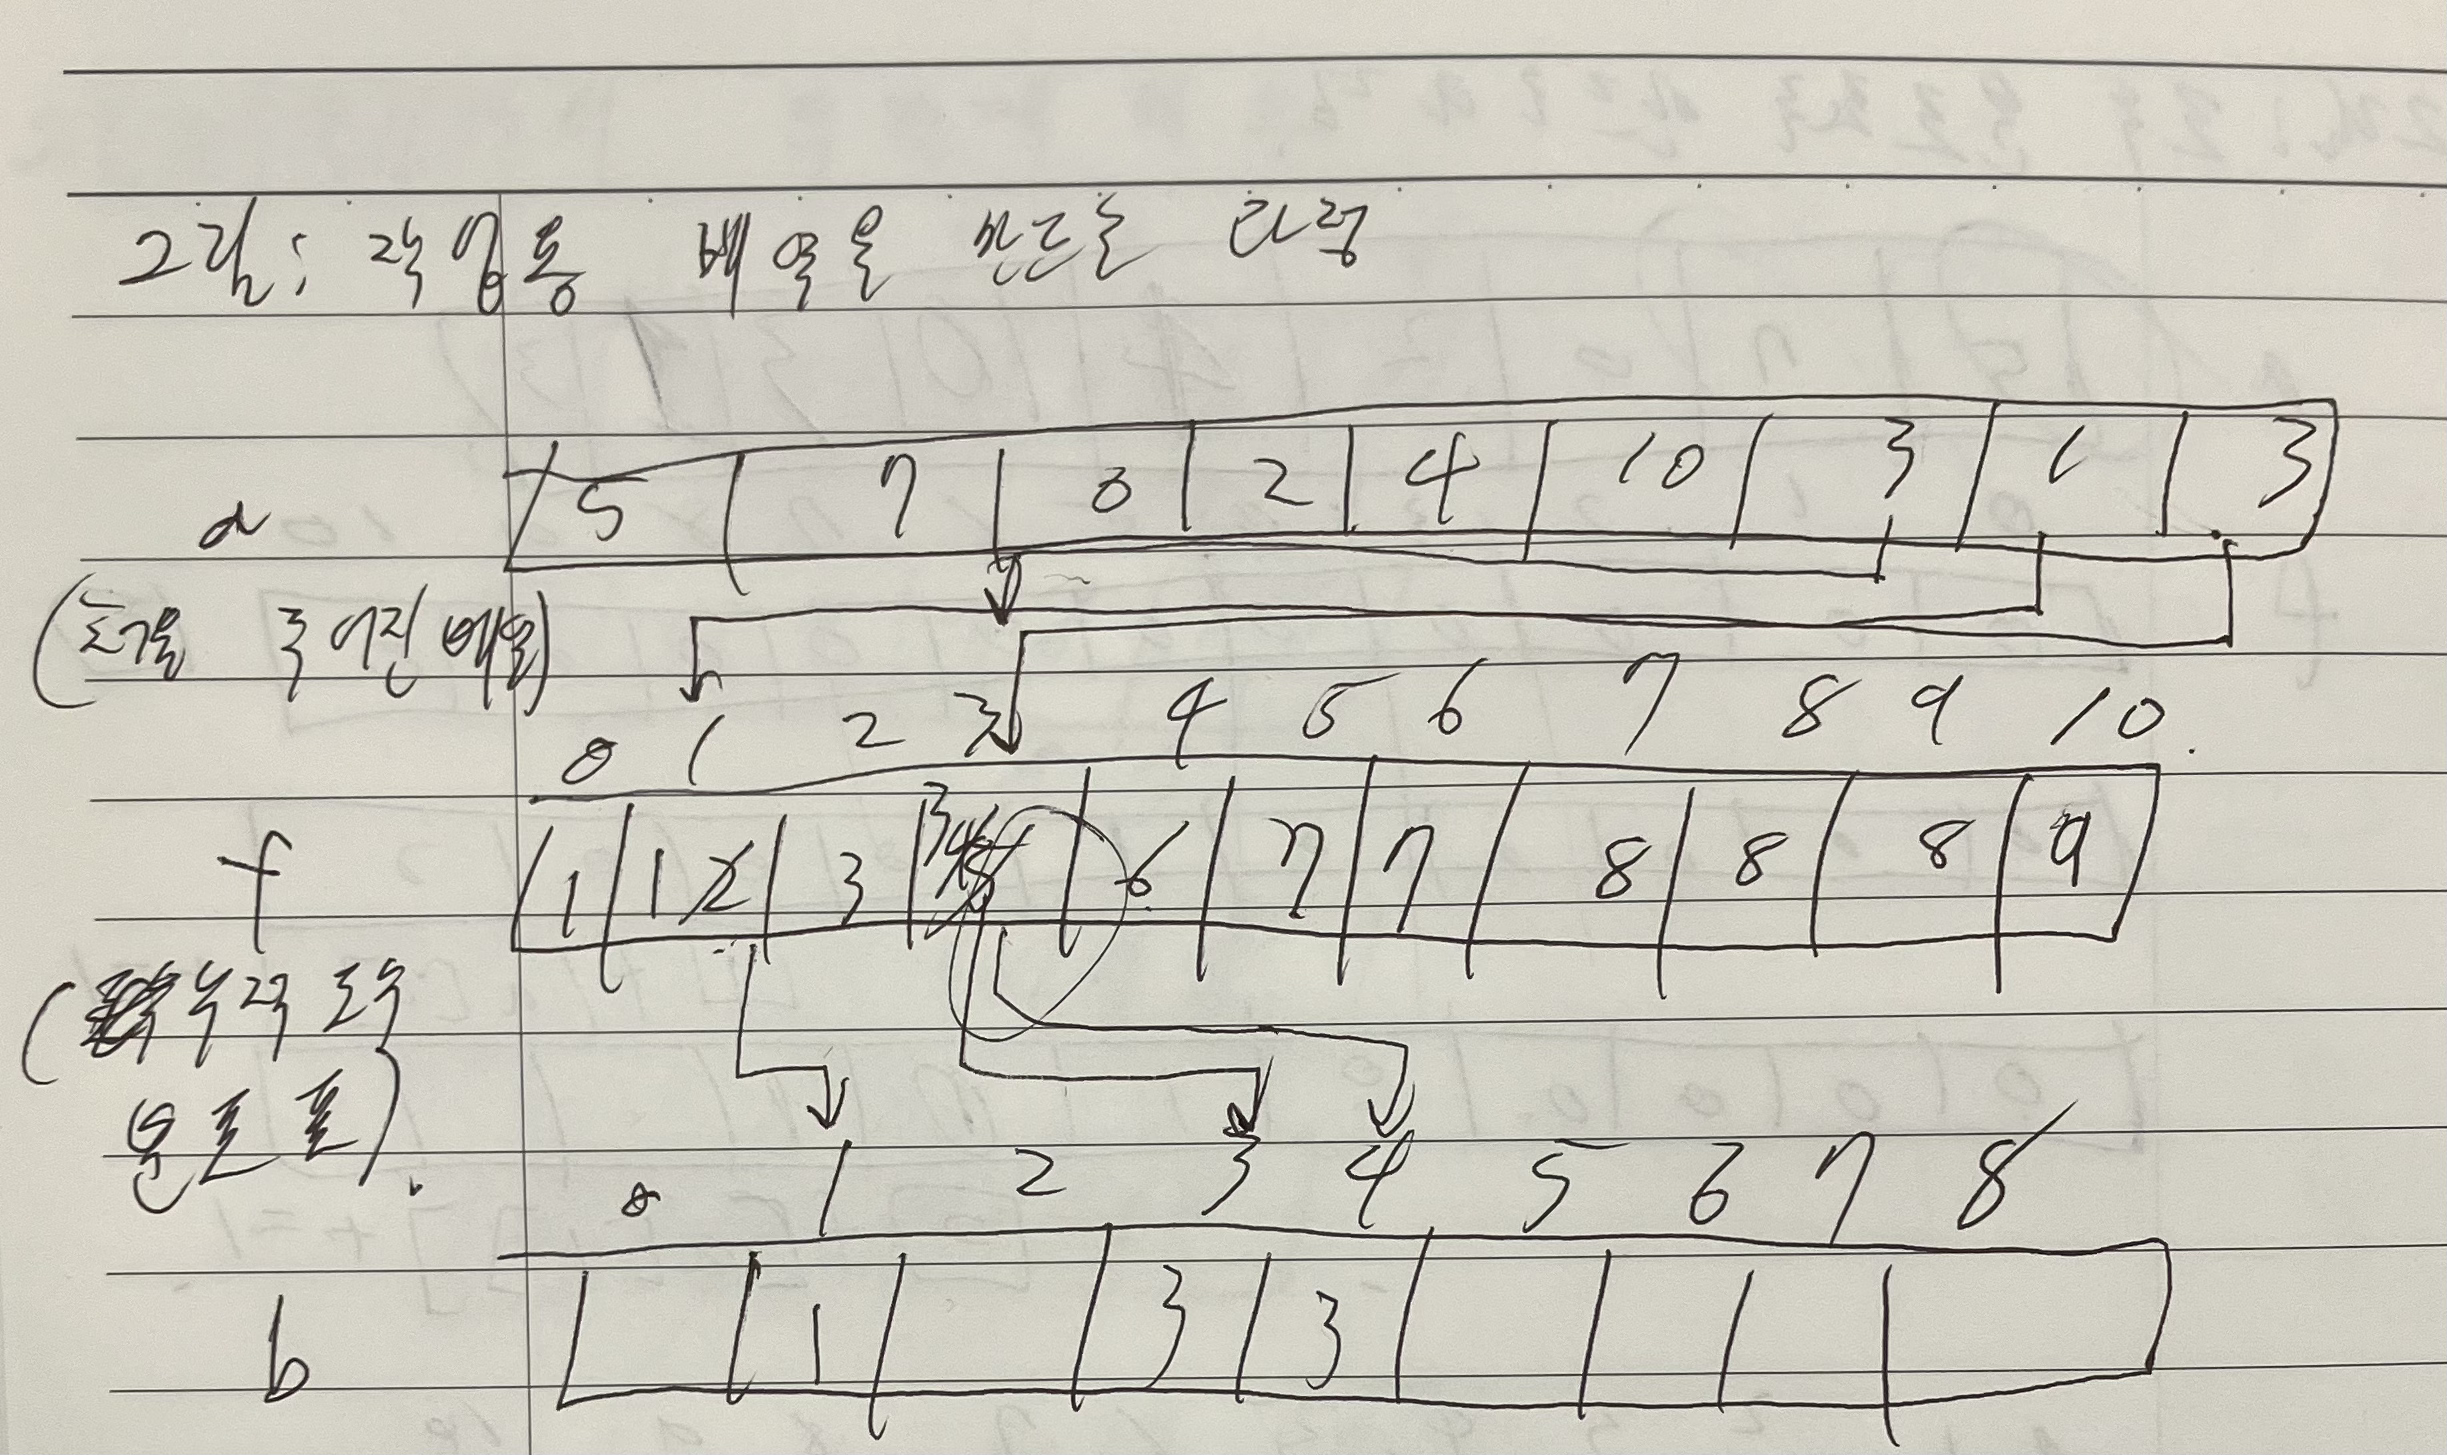 그림: 작업용 배열을 만드는 과정
5 7 0 2 4 10 3 1 3
a
(초기에 주어진 배열)
0 1 2 3 4 5 6 7 8 9 10
1 1 2 3 3 4 5 6 7 7 8 8 8 9
f
(누적 도수
분포표)
0 1 2 3 4 5 6 7 8
1 3 3
b